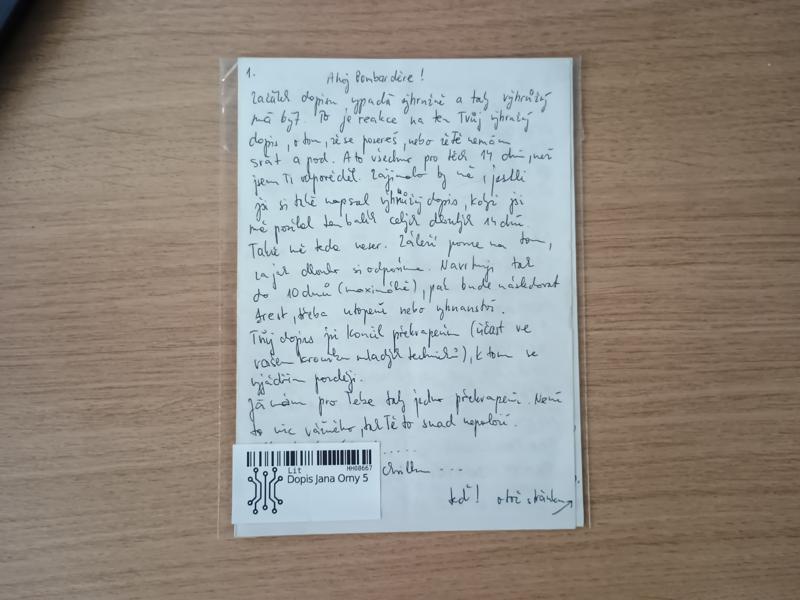 1.
Ahoj Bombardére!
Začátek dopisu vypadá výhružně a taky výhružný
má být. To je reakce na ten Tvůj výhružný
dopis, o tom, že se posereš, nebo že tě nemám
srát a pod. A to všechno pro těch 14 dnů, než
jsem Ti odpověděl. Zajímalo by mě, jestli
jsi si také napsal výhružný dopis, když jsi
mě posílal ten balík celých dlouhých 14 dnů.
Takže mě teda neser. Záleží pouze na tom,
za jak dlouho si odpovíme. Navrhuji tak
do 10 dnů (maximálně), pak bude následovat
trest, třeba utopení nebo vyhnanství.
Tvůj dopis jsi končil překvapením (účast ve
vašem kroužku mladých techniků), k tomu se
vyjádřím později.
Já mám pro Tebe taky jedno překvapení. Není
to nic vážného, tak Tě to snad nepoloží.
.....
chvilku ...
teď! otoč stránku
HH08667
Lit
Dopis Jana Orny 5